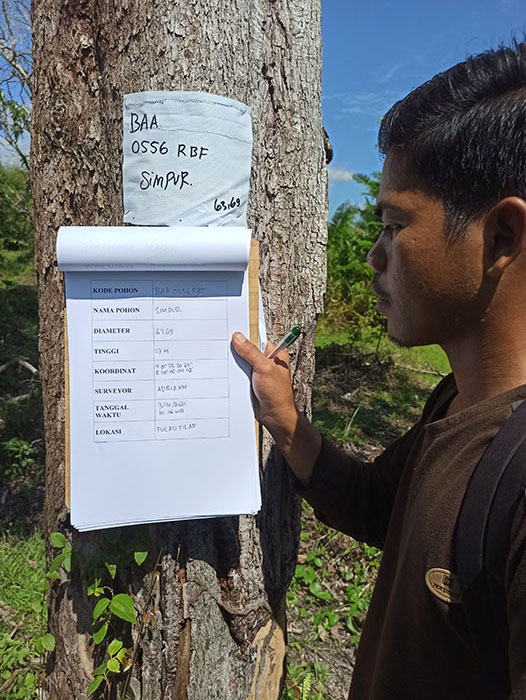 BAA
0556 RBF
SimPUR.
63,69
KODE POHON BAA 0556 RBF
NAMA POHON SIMPUR
DIAMETER 63,69
TINGGI 17 M
KOORDINAT
SURVEYOR
TANGGAL
WAKTU
LOKASI PULAU TILAN